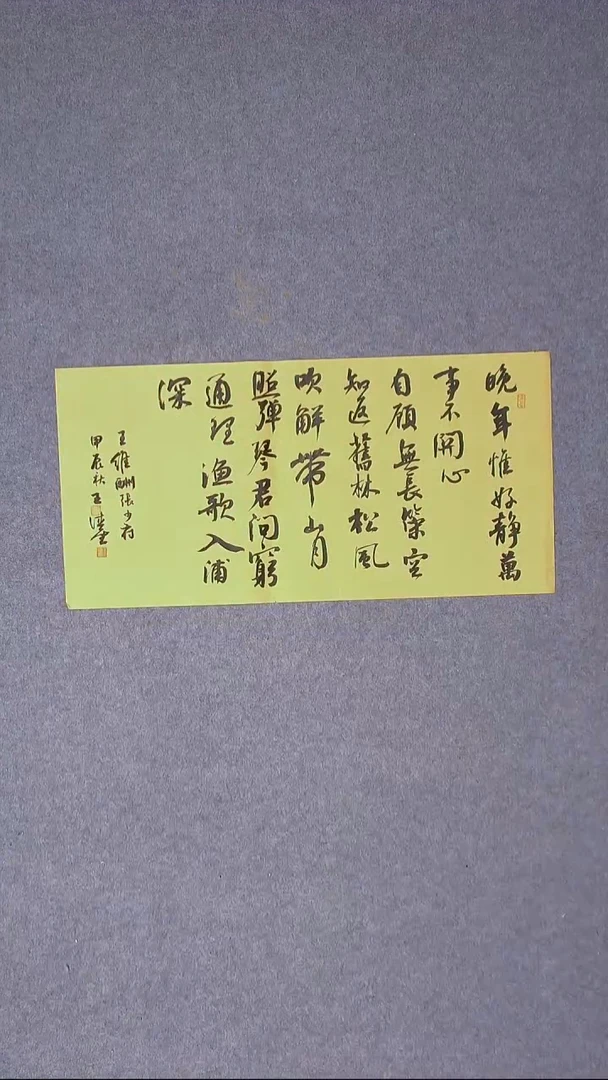 晚年惟好静萬
事不關心
自顧無長策空
知返舊林松風
吹解帶山月
照彈琴君問窮
通理漁歌入浦
深
王維酬張少府
甲辰秋王